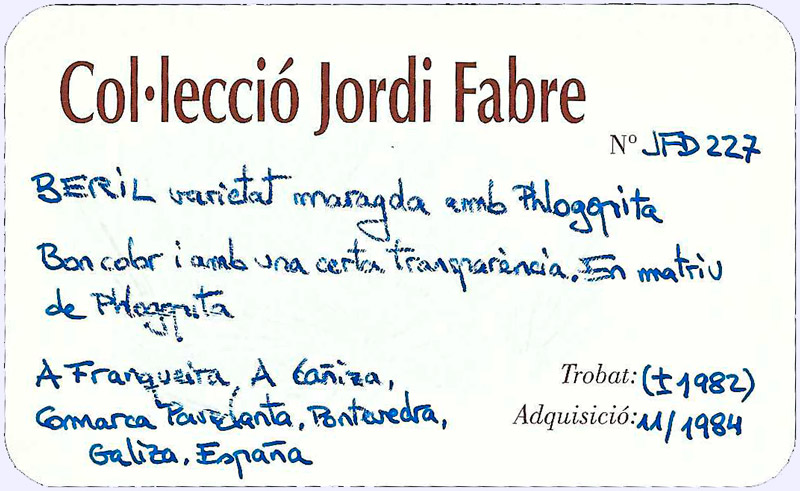 Col·lecció Jordi Fabre
Nº JFD 227
BERIL varietat maragda amb Phlogopita
Bon color i amb una certa transparència. En matriu
de Phlogopita
A Franqueira, A Cañiza,
Trobat: (± 1982)
Comarca Paradanta, Pontevedra,
Adquisició: 11/1984
Galiza, España